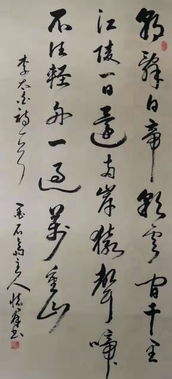 朝辭白帝彩雲間千里
江陵一日還兩岸猿聲啼
不住輕舟已過萬重山
李太白詩一首
石齋主人書